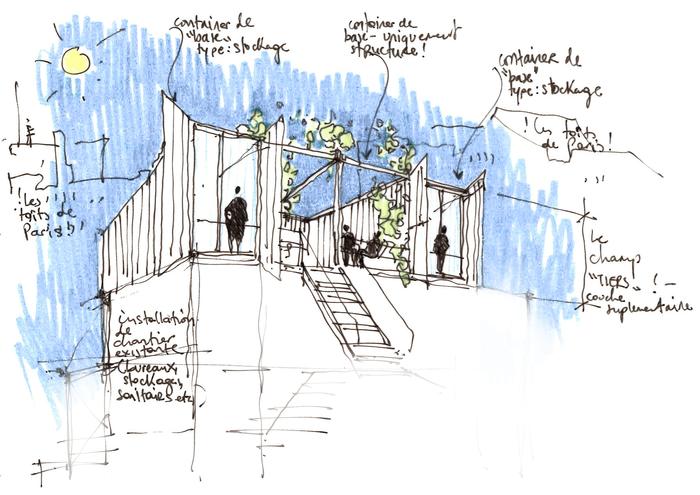 container de
"base"
type: stockage
container de
base - uniquement
structure!
container de
"base"
type: stockage
! Les toits
de Paris!
! Les
toits de
Paris !
Le
champ
"TIERS" ! -
couche
suplementaire
installation
de
chantier
existante
stockages,
sanitaires etc